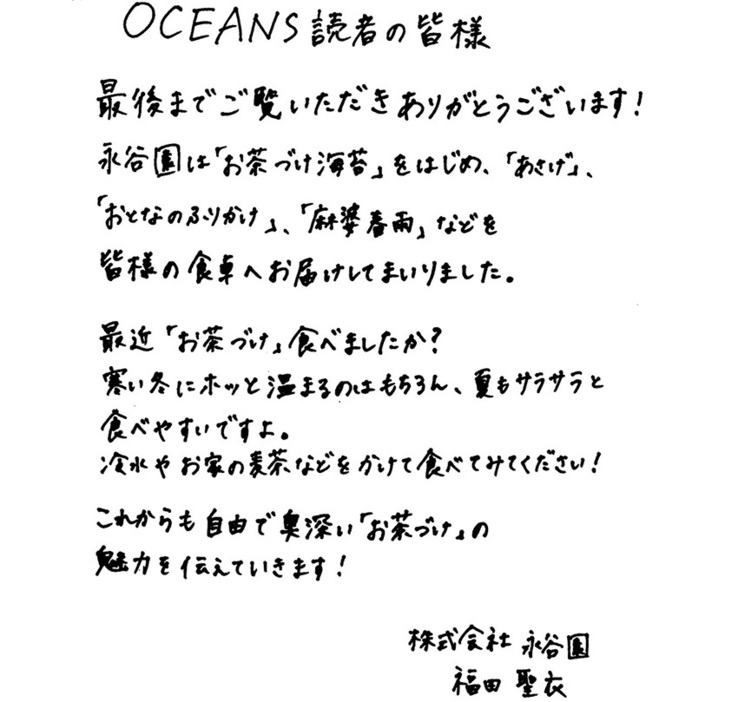 OCEANS読者の皆様
最後までご覧いただきありがとうございます！
永谷園は「お茶づけ海苔」をはじめ、「あさげ」、
「おとなのふりかけ」、「麻婆春雨」などを
皆様の食卓へお届けしてまいりました。
最近「お茶づけ」食べましたか？
寒い冬にホッと温まるのはもちろん、夏もサラサラと
食べやすいですよ。
冷水やお家の麦茶などをかけて食べてみてください！
これからも自由で奥深い「お茶づけ」の
魅力を伝えていきます！
株式会社 永谷園
福田 聖衣